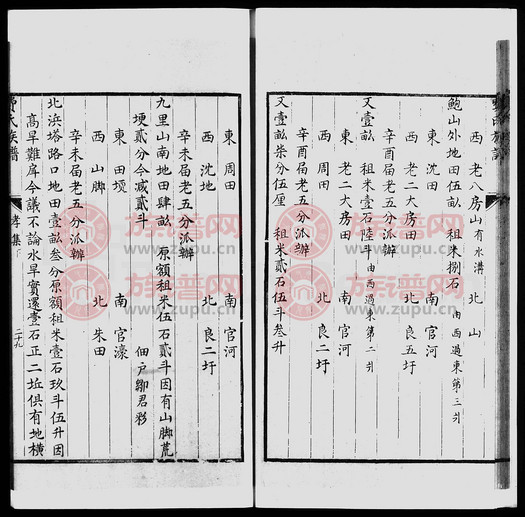 西　老八房山有水溝　北　山
鮑山外地田伍畝　租米捌石　由西過東第三爿
東　沈田　南　官河
西　老二大房田　北　良五圩
辛酉屆老五分派辦
又壹畝　租米壹石陸斗　由西過東第二爿
東　老二大房田　南　官河
西　周田　北　良二圩
辛酉屆老五分派辦
又壹畝柒分伍厘　租米貳石伍斗叁升
東　周田　南　官河
西　沈地　北　良二圩
辛未屆老五分派辦
九里山南地田肆畝　原額租米伍石貳斗因有山脚荒
埂貳分今減貳斗　佃戶鄒君彩
東　田埂　南　官濠
西　山脚　北　朱田
辛未屆老五分派辦
北浜塔路口地田壹畝叁分原額租米壹石玖斗伍升因
高旱難戽今議不論水旱實還壹石正二坵俱有地橫
氏族譜
孝集
二十九
族谱网
zupu.cn